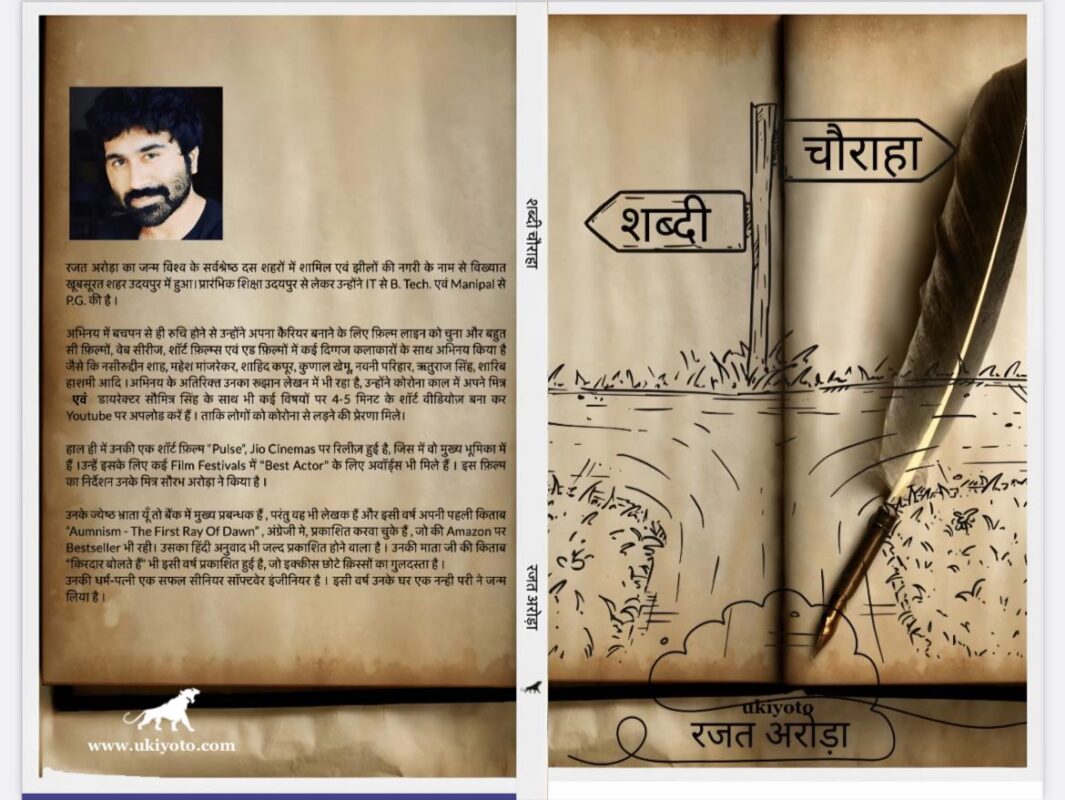 रजत अरोड़ा का जन्म विश्व के सर्वश्रेष्ठ दस शहरों में शामिल एवं झीलों की नगरी के नाम से विख्यात
खूबसूरत शहर उदयपुर में हुआ। प्रारंभिक शिक्षा उदयपुर से लेकर उन्होंने IT से B. Tech. एवं Manipal से
P.G. की है ।
अभिनय में बचपन से ही रुचि होने से उन्होंने अपना कैरियर बनाने के लिए फ़िल्म लाइन को चुना और बहुत
सी फ़िल्मों, वेब सीरीज, शॉर्ट फ़िल्म्स एवं एड फ़िल्मों में कई दिग्गज कलाकारों के साथ अभिनय किया है
जैसे कि नसीरुद्दीन शाह, महेश मांजरेकर, शाहिद कपूर, कुणाल खेमू, नवनी परिहार, ऋतुराज सिंह, शारिब
हाशमी आदि । अभिनय के अतिरिक्त उनका रूझान लेखन में भी रहा है, उन्होंने कोरोना काल में अपने मित्र
एवं डायरेक्टर सौमित्र सिंह के साथ भी कई विषयों पर 4-5 मिनट के शॉर्ट वीडियोज़ बना कर
Youtube पर अपलोड करें हैं । ताकि लोगों को कोरोना से लड़ने की प्रेरणा मिले।
हाल ही में उनकी एक शॉर्ट फ़िल्म "Pulse", Jio Cinemas पर रिलीज़ हुई है, जिस में वो मुख्य भूमिका में
हैं । उन्हें इसके लिए कई Film Festivals में "Best Actor" के लिए अवॉर्ड्स भी मिले हैं । इस फ़िल्म
का निर्देशन उनके मित्र सौरभ अरोड़ा ने किया है ।
उनके ज्येष्ठ भ्राता यूँ तो बैंक में मुख्य प्रबन्धक हैं , परंतु वह भी लेखक हैं और इसी वर्ष अपनी पहली किताब
"Aumnism - The First Ray Of Dawn" , अंग्रेजी मे, प्रकाशित करवा चुके हैं , जो की Amazon पर
Bestseller भी रही। उसका हिंदी अनुवाद भी जल्द प्रकाशित होने वाला है । उनकी माता जी की किताब
"किरदार बोलते हैं" भी इसी वर्ष प्रकाशित हुई है, जो इक्कीस छोटे क़िस्सों का गुलदस्ता है ।
उनकी धर्म-पत्नी एक सफल सीनियर सॉफ्टवेर इंजीनियर है । इसी वर्ष उनके घर एक नन्ही परी ने जन्म
लिया है ।
www.ukiyoto.com
शब्दी चौराहा
रजत अरोड़ा
चौराहा
शब्दी
ukiyoto
रजत अरोड़ा